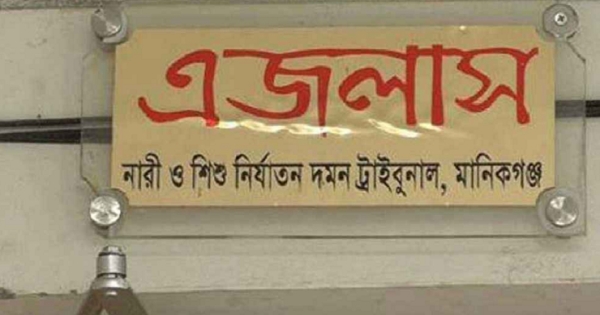 এজলাস
নারী ও শিশু নির্যাতন দমন ট্রাইবুনাল, মানিকগঞ্জ